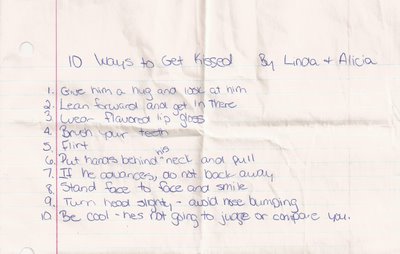 10 Ways to Get Kissed By Linda + Alicia
1. Give him a hug and look at him
2. Lean forward and get in there
3. Wear flavored lip gloss
4. Brush your teeth
5. Flirt
6. Put hands behind his neck and pull
7. If he advances, do not back away
8. Stand face to face and smile
9. Turn head slighty - avoid nose bumping
10. Be cool - hes not going to judge or compare you.